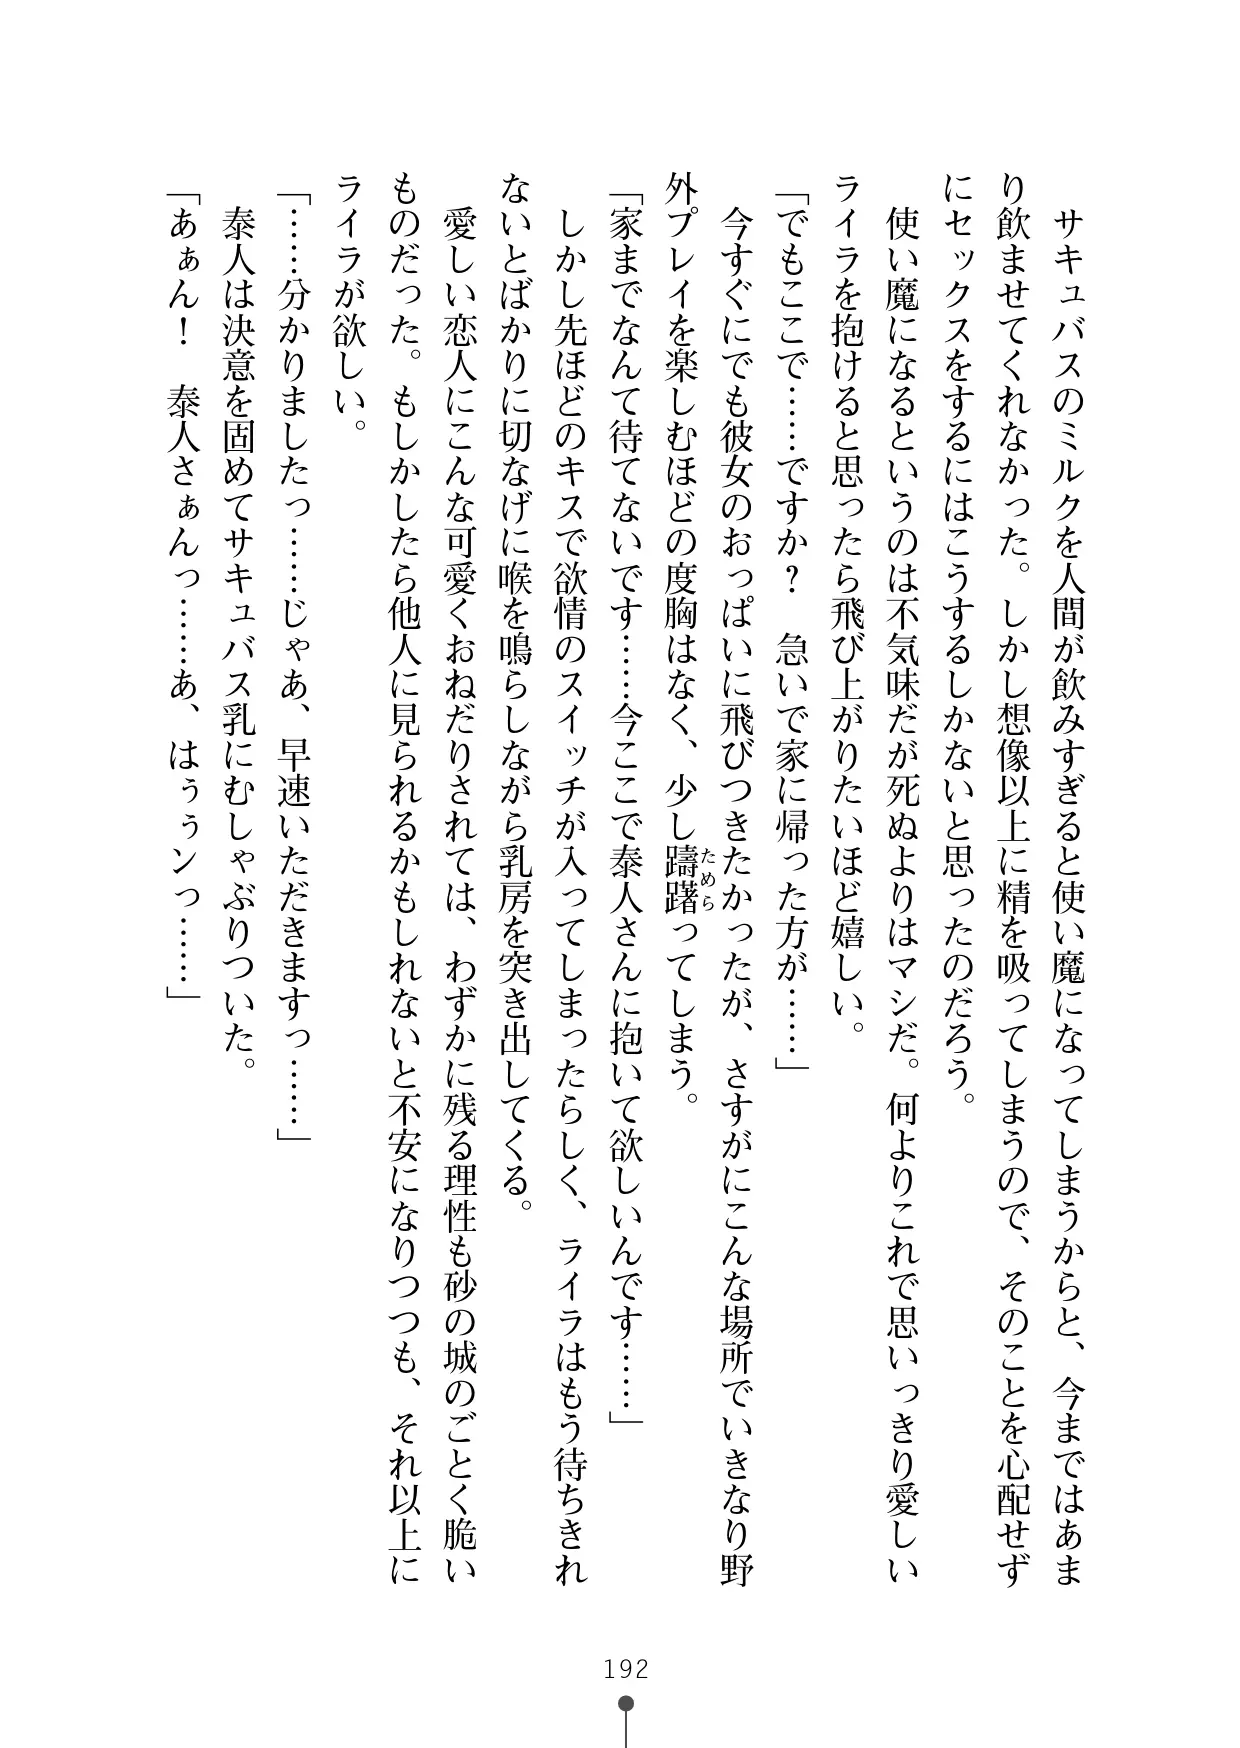 サキュバスのミルクを人間が飲みすぎると使い魔になってしまうからと、今まではあま
り飲ませてくれなかった。しかし想像以上に精を吸ってしまうので、そのことを心配せず
にセックスをするにはこうするしかないと思ったのだろう。
使い魔になるというのは不気味だが死ぬよりはマシだ。何よりこれで思いっきり愛しい
ライラを抱けると思ったら飛び上がりたいほど嬉しい。
「でもここで……ですか？　急いで家に帰った方が……」
今すぐにでも彼女のおっぱいに飛びつきたかったが、さすがにこんな場所でいきなり野
外プレイを楽しむほどの度胸はなく、少し躊躇ってしまう。
ためら
「家までなんて待てないです……今ここで泰人さんに抱いて欲しいんです……」
しかし先ほどのキスで欲情のスイッチが入ってしまったらしく、ライラはもう待ちきれ
ないとばかりに切なげに喉を鳴らしながら乳房を突き出してくる。
愛しい恋人にこんな可愛くおねだりされては、わずかに残る理性も砂の城のごとく脆い
ものだった。もしかしたら他人に見られるかもしれないと不安になりつつも、それ以上に
ライラが欲しい。
「……分かりましたっ……じゃあ、早速いただきますっ……」
泰人は決意を固めてサキュバス乳にむしゃぶりついた。
「あぁん！　泰人さぁんっ……あ、はぅぅンっ……」
192